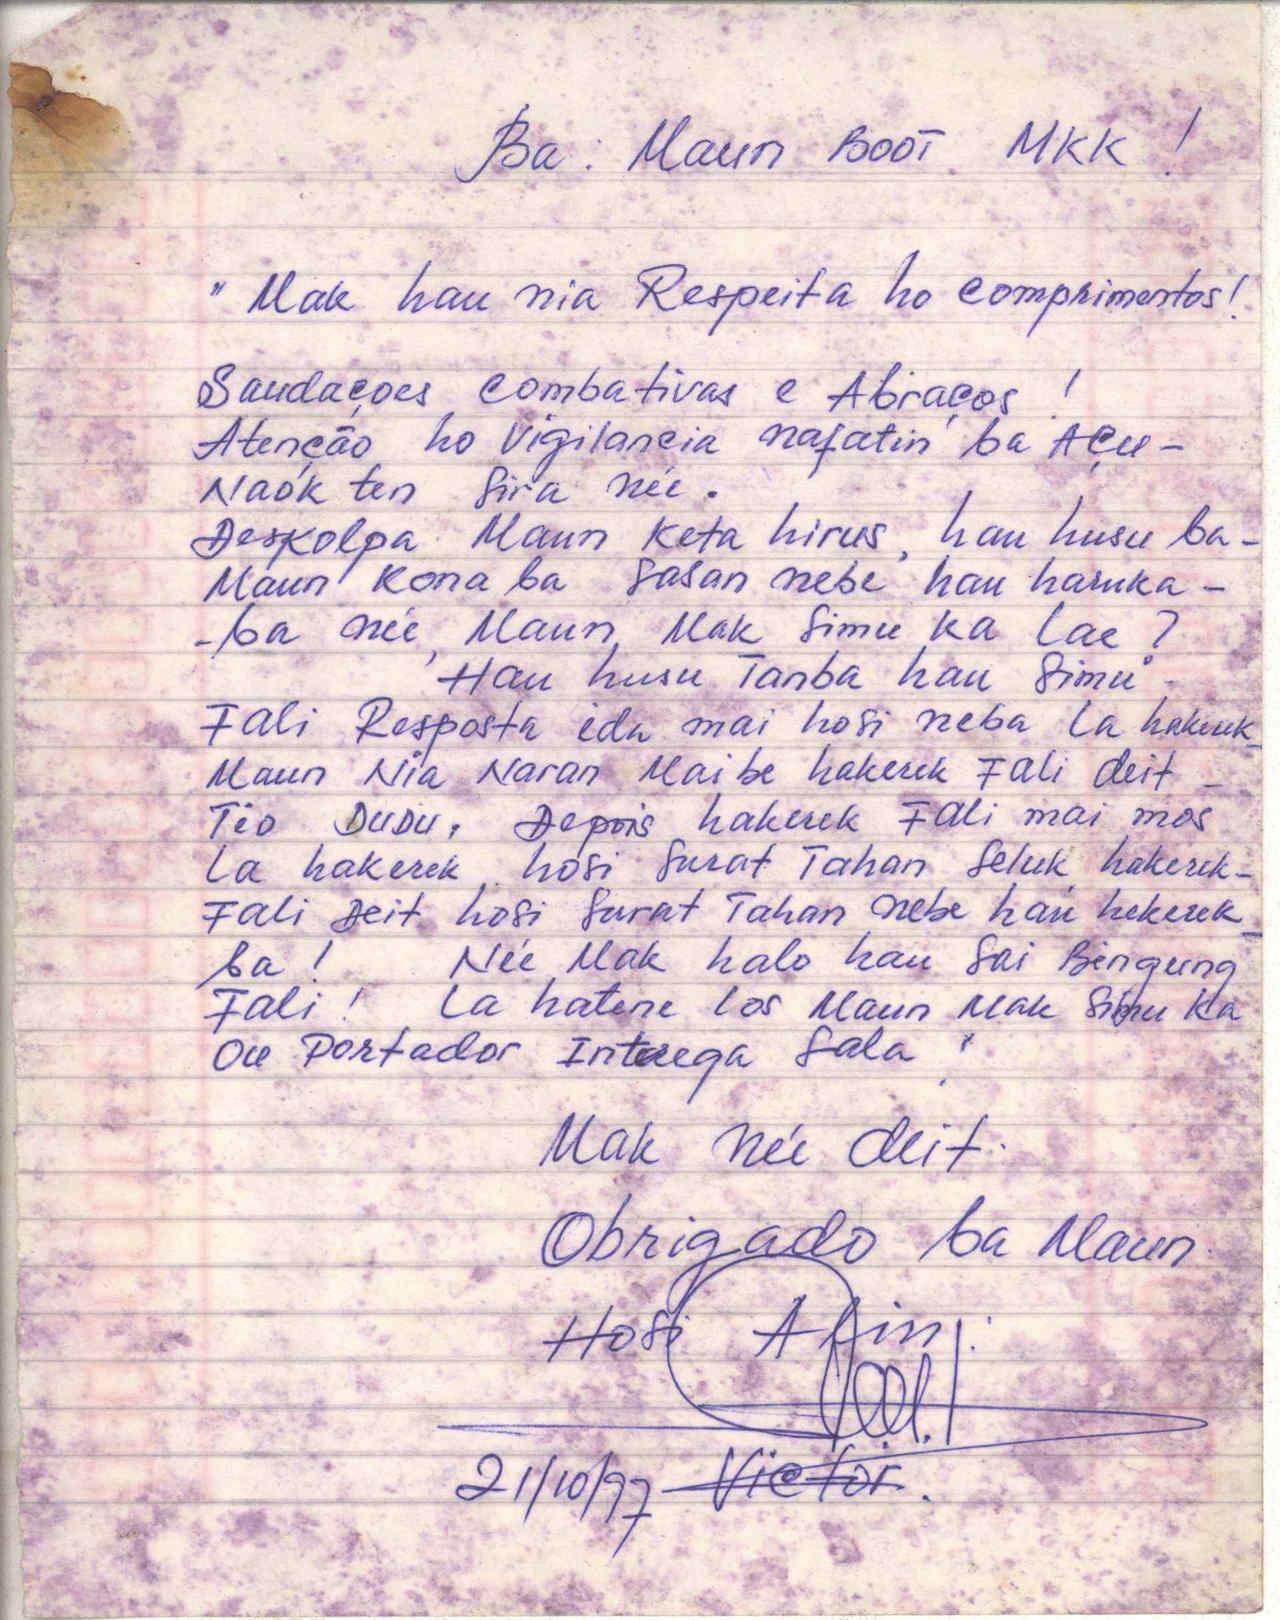 Ba: Maun Boot MKK !
" Mak hau nia Respeita ho comprimentos!
Saudaçoes combativas e Abraços !
Atenção ho Vigilancia nafatin ba Açu-
Naók ten sira neé.
Deskolpa Maun keta hirus, hau husu ba-
Maun kona ba sasan nebé hau haruka -
-ba neé, Maun Mak simu ka lae ?
Hau husu Tanba hau simu
Fali Resposta ida mai hosi neba la hakerek
Maun Nia Naran Maibe hakerek Fali deit -
Tio DUDU. Depois hakerek Fali mai mos
La hakerek hosi surat Tahan seluk hakerek-
Fali Deit hosi surat Tahan nebe hau hekerek
ba ! Neé Mak halo hau sai Bingung
Fali ! La hatene los Maun Mak simu ka
Ou Portador Interega sala !
Mak neé deit.
Obrigado ba Maun
Hosi Alin,
21/10/97 Victor.